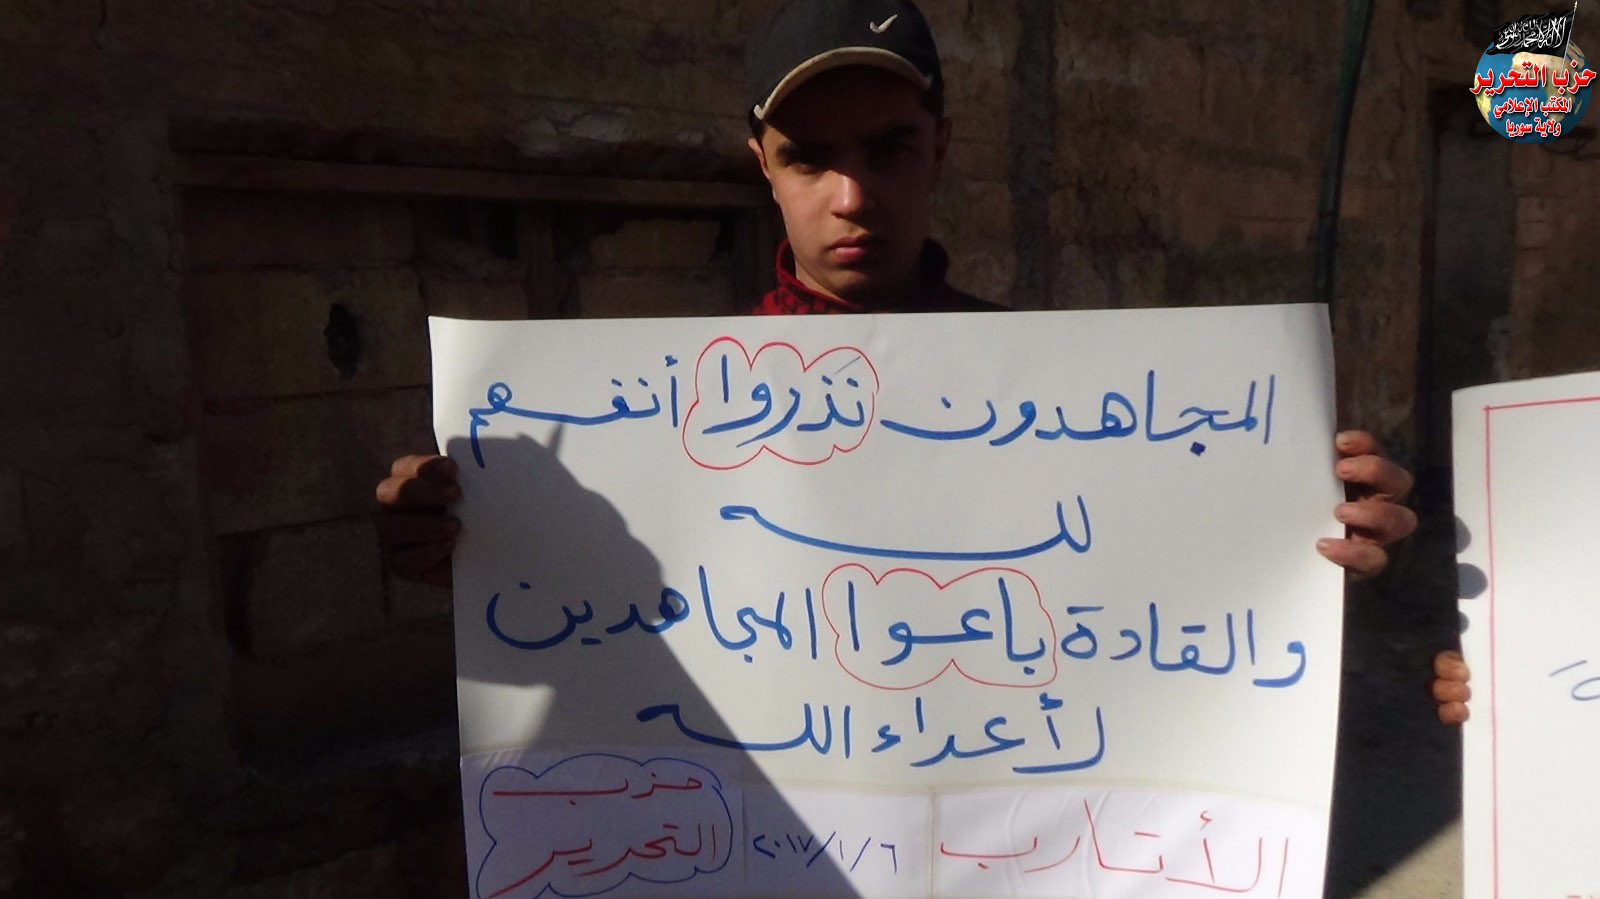 حزب التحرير
المكتب الإعلامي
ولاية سوريا
المجاهدون نَذروا أنفسهم
لله
والقادة باعوا المجاهدين
لأعداء الله
الأتارب
٢٠١٧/١/٦
حزب
التحرير